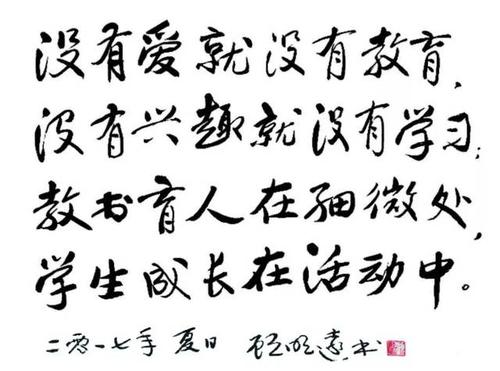 没有爱就没有教育，
没有兴趣就没有学习；
教书育人在细微处，
学生成长在活动中。
二零一七年 夏日 顾明远书